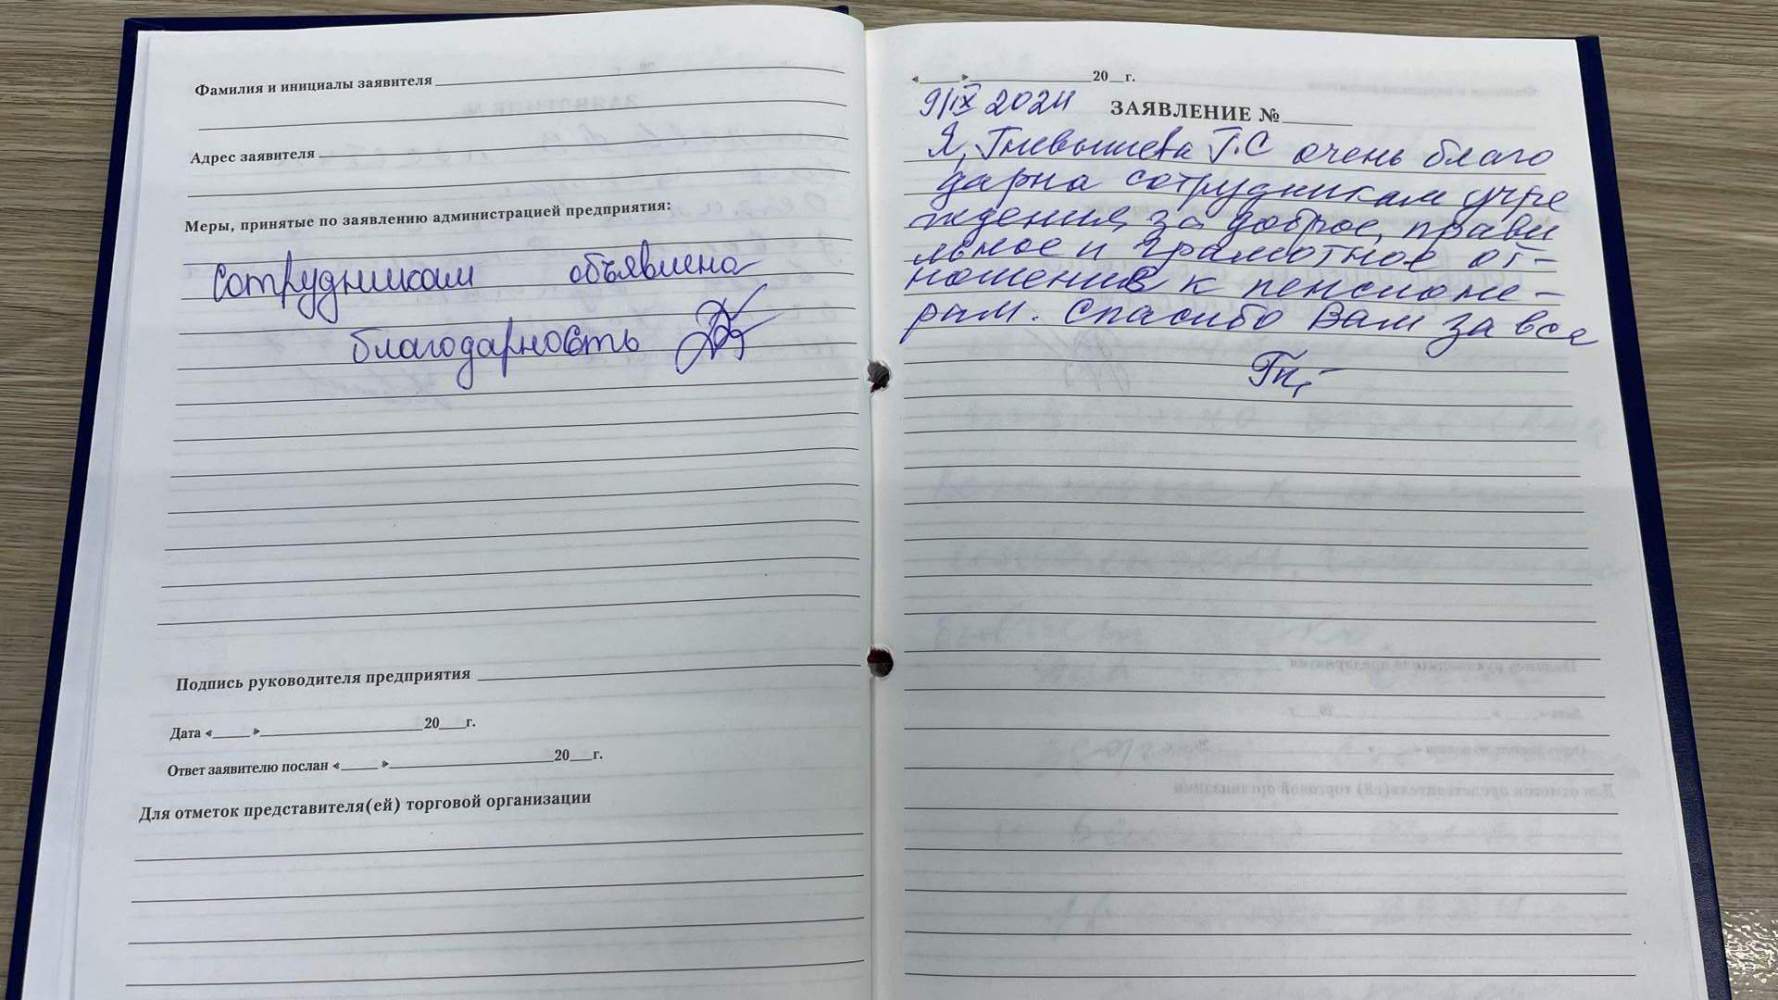 Фамилия и инициалы заявителя
Адрес заявителя
Меры, принятые по заявлению администрацией предприятия:
сотрудникам объявлена
благодарность
Подпись руководителя предприятия
Дата «____» ____________ 20___г.
Ответ заявителю послан «____» ____________ 20___г.
Для отметок представителя(ей) торговой организации
«____» ____________ 20__г.
9/IX 2024
ЗАЯВЛЕНИЕ №______
Я, Гневышева Г.С очень благо
дарна сотрудникам учре
ждения, за доброе, прави
льное и грамотное от-
ношение к пенсионе-
рам. Спасибо Вам за все
Гн